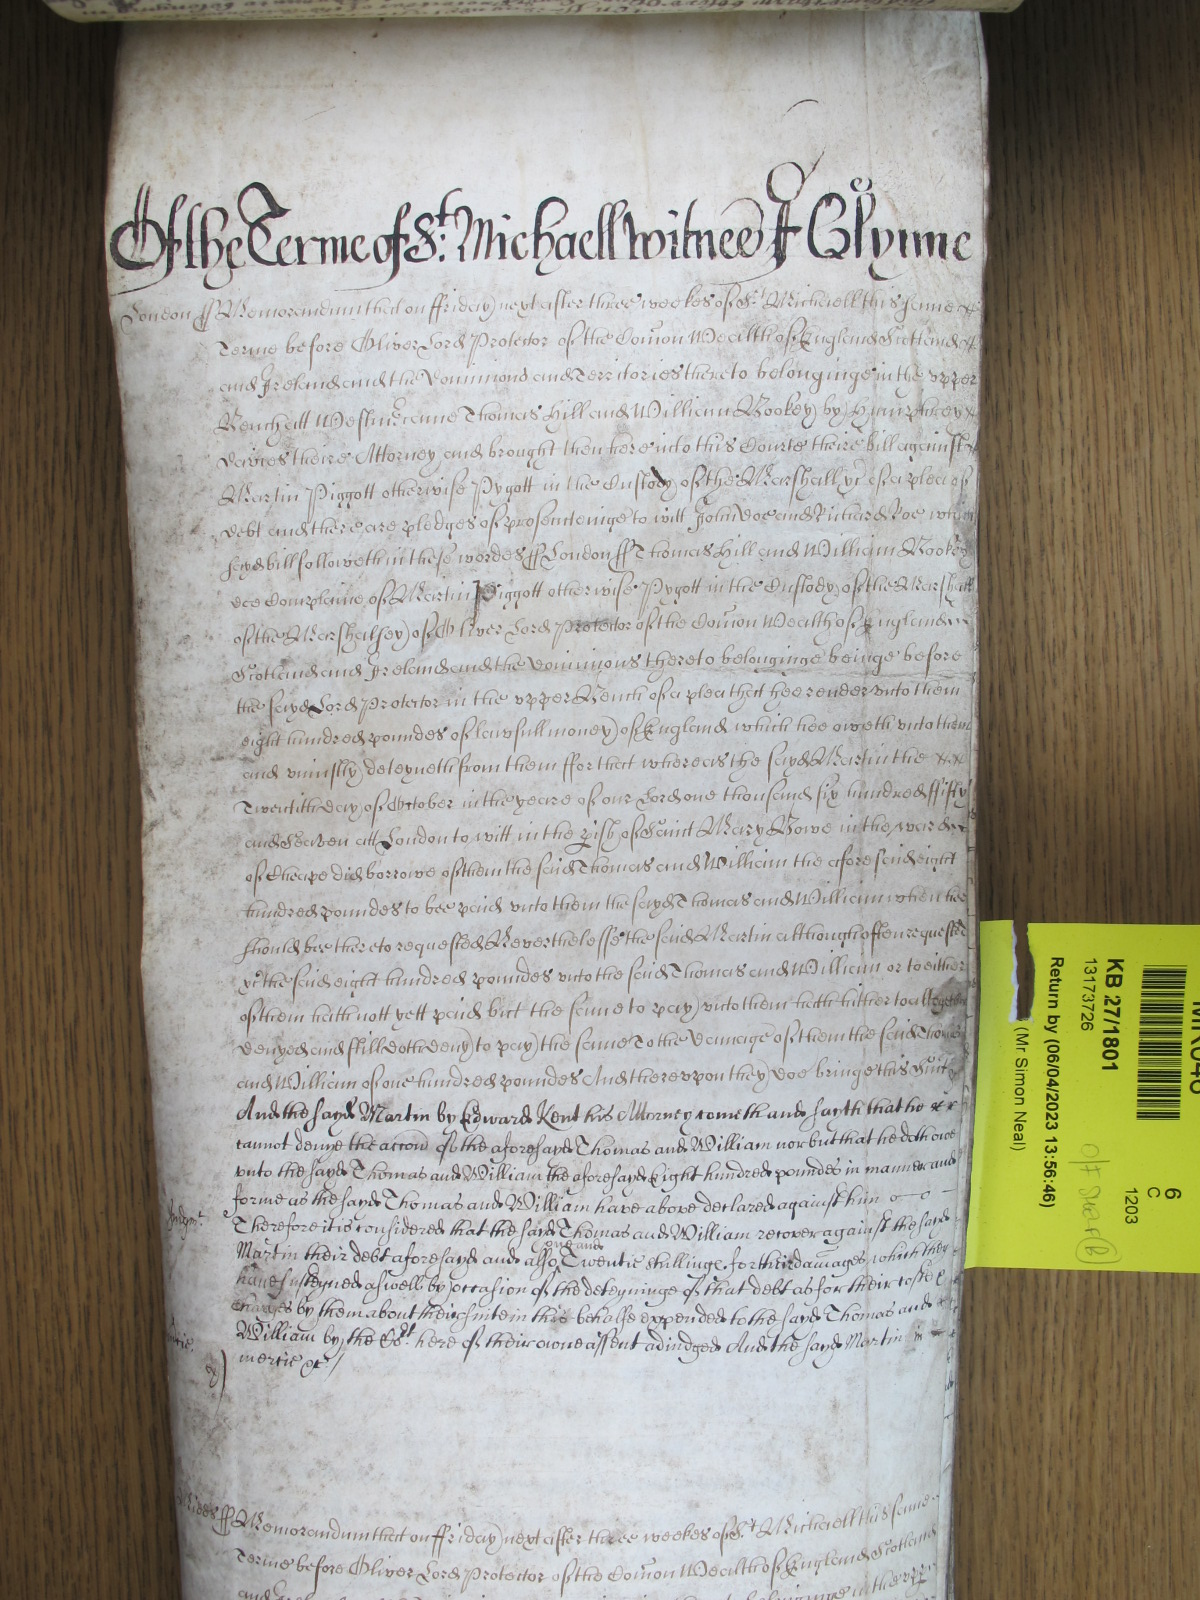 Of the Terme of St: Michaell Witnes J Glynne
London ss Memorandum that on ffriday next after three weekes of St Michaell this same
Terme before Oliver Lord Protector of the Com̄on Wealth of England Scotland
and Ireland and the Dominions and Territories thereto belonginge in the vpper
Bench att Westmr came Thomas Hill and William Bookey by Humphrey
Davies theire Attorney and brought then here into this Courte theire bill against
Martin Piggott otherwise Pygott in the Custody of the Marshall &c of a plea of
debt and there are pledges of prosecutinge to witt John Doe and Richard Roe which
sayd bill followeth in these wordes ss London ss Thomas Hill and William Bookey
doe Complaine of Martin Piggott otherwise Pygott in the Custody of the Marshall
of the Marshalsey of Oliver Lord Protector of the Com̄on Wealth of England
Scotland and Ireland and the Dominions thereto belonginge beinge before
the sayd Lord Protector in the vpper Bench of a plea that hee render vnto them
eight hundred poundes of lawfull money of England which hee oweth vnto them
and vniustly deteyneth from them ffor that whereas the sayd Martin the
Twentith day of October in the yeare of our Lord one thousand six hundred ffifty
and Seaven att London to witt in the pish of Saint Mary Bowe in the ward
of Cheape did borrowe of them the said Thomas and William the aforesaid eight
hundred poundes to bee paid vnto them the sayd Thomas and William when hee
should bee thereto requested Neverthelesse the said Martin although often requested
&c the said eight hundred poundes vnto the said Thomas and William or to either
of them hath nott yett paid but the same to pay vnto them hath hitherto altogether
denyed and still doth deny to pay the same To the Damage of them the said Thomas
and William of one hundred poundes And therevpon they doe bringe this suit
And the sayd Martin by Edward Kent his Attorney cometh and sayth that he
cannot denye the accon̄ of the aforesayd Thomas and William nor but that he doth owe
vnto the sayd Thomas and William the aforesayd Eight hundred poundes in manner and
forme as the sayd Thomas and William have above declared against him
Judgmt
Therefore it is considered that the sayd Thomas and William recover against the sayd
one and
Martin their debt aforesayd and also Twentie shillinge for their damages which they
have susteyned aswell by occasion of the deteyninge of that debt as for their coste &
charges by them about their suite in this behalfe expended to the sayd Thomas and
William by the Crt here of their owne assent adiudged And the sayd Martin in
mercie &c
ss Memorandum that on ffriday next after three weekes of St Michaell this same
Terme before Oliver Lord Protector of the Com̄on Wealth of England Scotland
and belonginge in the vpper
6
C
1203
KB 27/1801
13173726
Return by (06/04/2023 13:56:46)
(Mr Simon Neal)